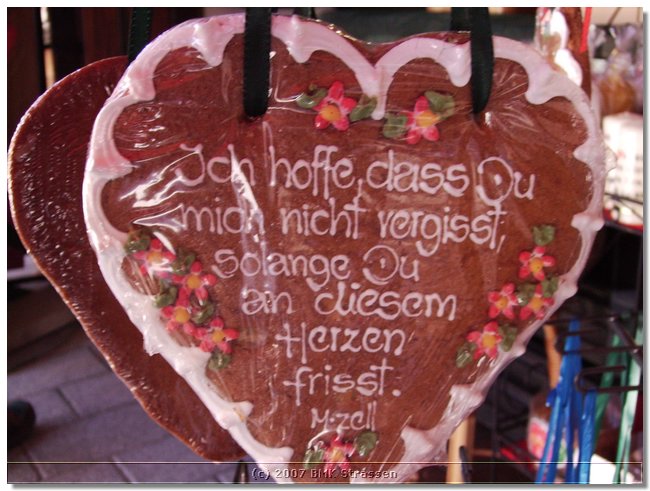 Ich hoffe, dass Du
mich nicht vergisst,
solange Du
an diesem
Herzen
frisst.
M-zell
(c) 2007 BMK Strassen